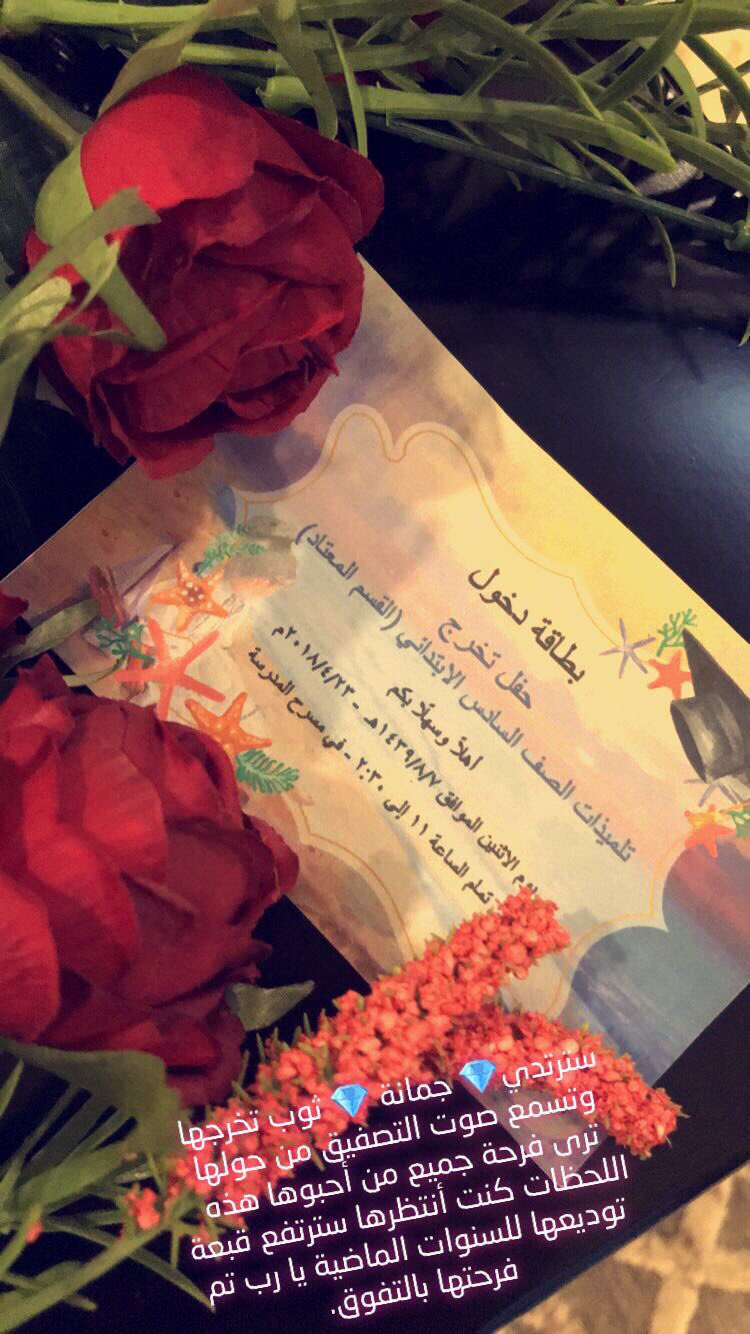 بطاقة دخول
حفل تخرج
تلميذات الصف السادس الابتدائي (القسم المعتاد)
أهلاً وسهلاً بكم
يوم الاثنين الموافق ١٤٣٩/٨/٧هـ - ٢٠١٨/٤/٢٣م
تمام الساعة ١١ إلى ٢:٣٠ - في مسرح المدرسة
سترتدي 💎 جمانة 💎 ثوب تخرجها
وتسمع صوت التصفيق من حولها
ترى فرحة جميع من أحبوها هذه
اللحظات كنت أنتظرها سترتفع قبعة
توديعها للسنوات الماضية يا رب تم
فرحتها بالتفوق.